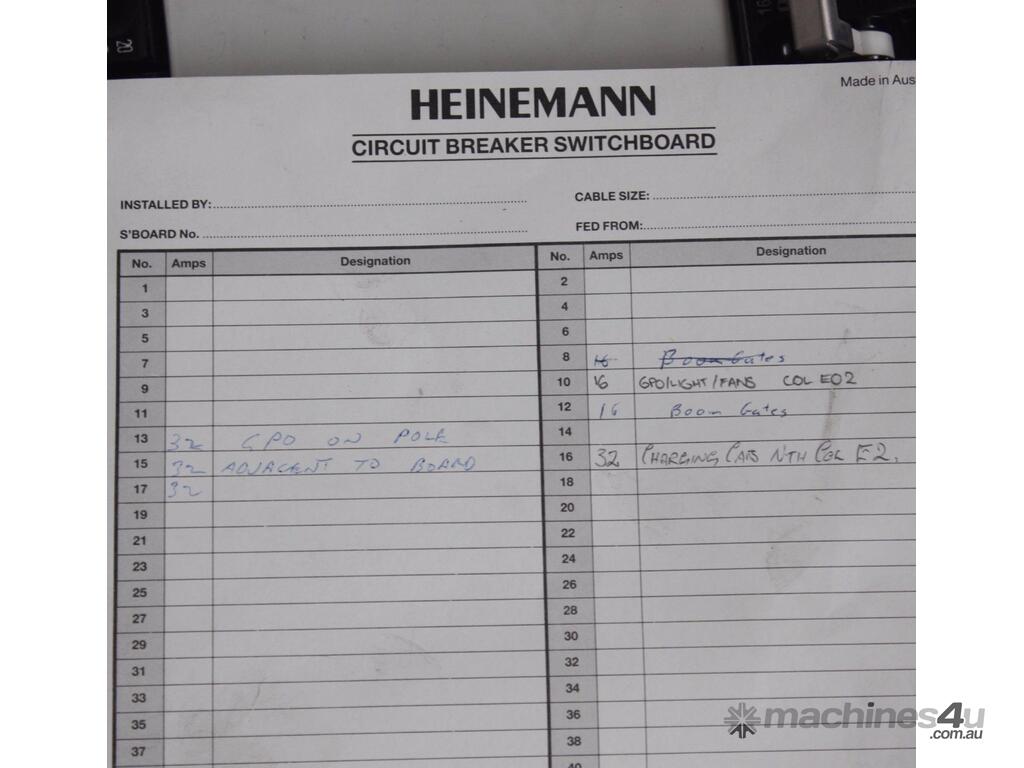 20
16
Made in Aus
HEINEMANN
CIRCUIT BREAKER SWITCHBOARD
INSTALLED BY:
CABLE SIZE:
S'BOARD No.
FED FROM:
No. Amps Designation No. Amps Designation
1 2
3 4
5 6
7 8 16 Boom Gates
9 10 16 GPO/LIGHT/FANS COL E02
11 12 16 Boom Gates
13 32 GPO ON POLE 14
15 32 ADJACENT TO BOARD 16 32 CHARGING CARS NTH COL E2.
17 32 18
19 20
21 22
23 24
25 26
27 28
29 30
31 32
33 34
35 36
37 38
40
machines4u
.com.au